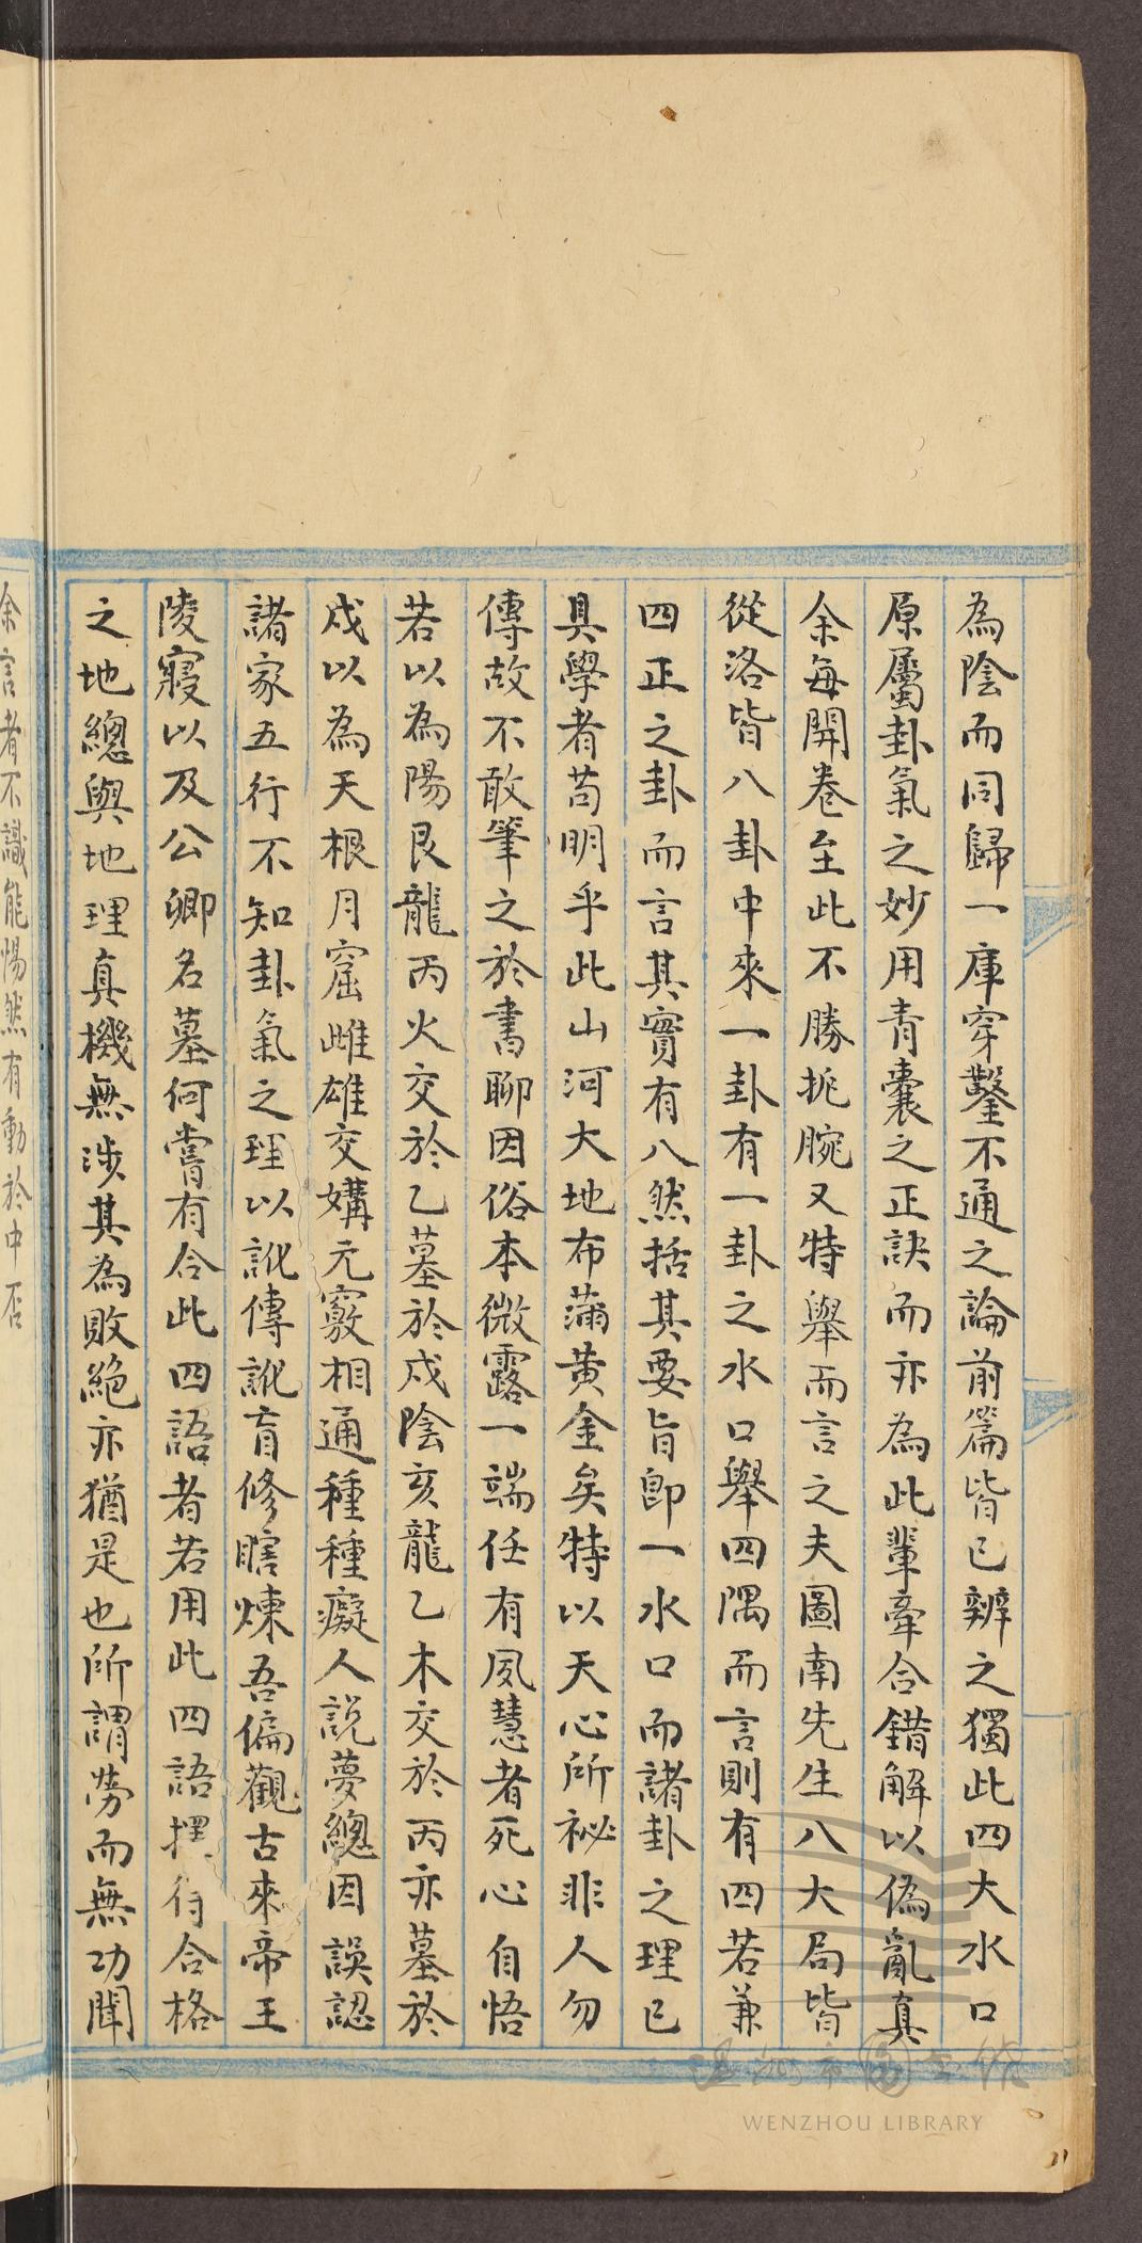 為陰而同歸一庫穿鑿不通之論前篇皆已辨之獨此四大水口
原屬卦氣之妙用青囊之正訣而亦為此輩牽合錯解以偽亂真
余每開卷至此不勝扼腕又特舉而言之夫圖南先生八大局皆
從洛皆八卦中來一卦有一卦之水口舉四隅而言則有四若兼
四正之卦而言其實有八然括其要旨即一水口而諸卦之理已
具學者苟明乎此山河大地布滿黃金矣特以天心所祕非人勿
傳故不敢筆之於書聊因俗本微露一端任有夙慧者死心自悟
若以為陽艮龍丙火交於乙墓於戌陰亥龍乙木交於丙亦墓於
戌以為天根月窟雌雄交媾元竅相通種種癡人說夢總因誤認
諸家五行不知卦氣之理以訛傳訛盲修瞎煉吾偏觀古來帝王
陵寢以及公卿名墓何嘗有合此四語者若用此四語擇得合格
之地總與地理真機無涉其為敗絕亦猶是也所謂勞而無功聞
余言者不識能惕然有動於中否
WENZHOU LIBRARY